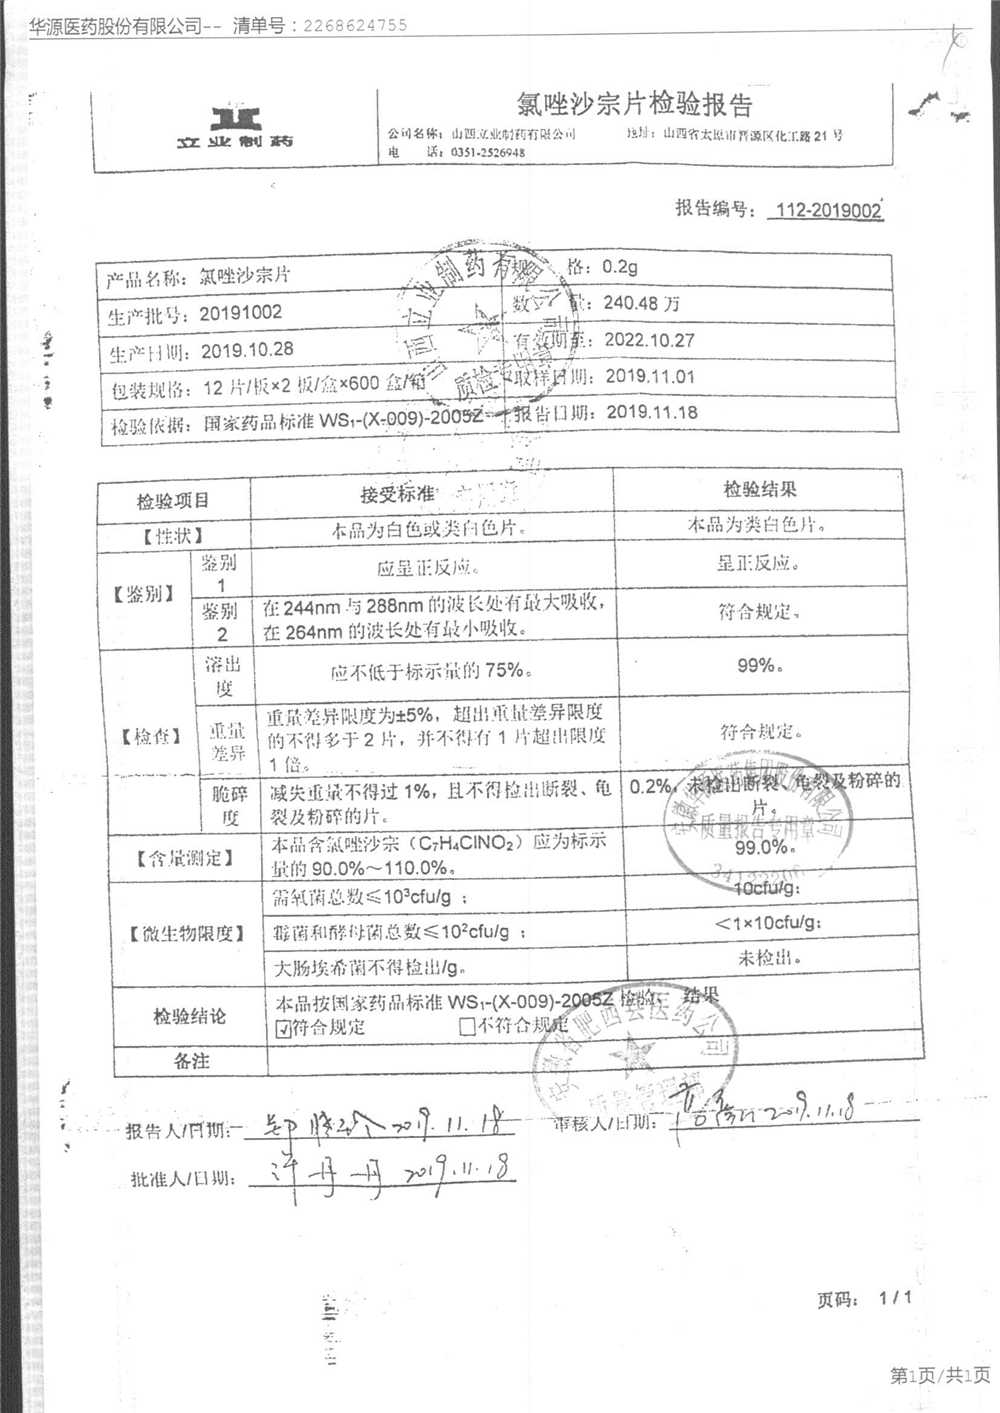 华源医药股份有限公司-- 清单号：2268624755
立业制药
氯唑沙宗片检验报告
公司名称：山西立业制药有限公司 地址：山西省太原市晋源区化工路21号
电 话：0351-2526948
报告编号：112-2019002
产品名称：氯唑沙宗片 规 格：0.2g
生产批号：20191002 数 量：240.48 万
生产日期：2019.10.28 有效期至：2022.10.27
包装规格：12 片/板×2 板/盒×600 盒/箱 取样日期：2019.11.01
检验依据：国家药品标准 WS₁-(X-009)-2005Z 报告日期：2019.11.18
山西立业制药有限公司
质检专用章
检验项目 接受标准 检验结果
【性状】 本品为白色或类白色片。 本品为类白色片。
【鉴别】
鉴别 1 应呈正反应。 呈正反应。
鉴别 2 在 244nm 与 288nm 的波长处有最大吸收， 符合规定。
在 264nm 的波长处有最小吸收。
【检查】
溶出度 应不低于标示量的 75%。 99%。
重量差异 重量差异限度为±5%，超出重量差异限度 符合规定。
的不得多于 2 片，并不得有 1 片超出限度
1 倍。
脆碎度 减失重量不得过 1%，且不得检出断裂、龟 0.2%，未检出断裂、龟裂及粉碎的
裂及粉碎的片。 片。
【含量测定】 本品含氯唑沙宗（C₇H₄ClNO₂）应为标示 99.0%。
量的 90.0%～110.0%。
质量报告专用章
【微生物限度】
需氧菌总数≤10³cfu/g ； 10cfu/g；
霉菌和酵母菌总数≤10²cfu/g ； ＜1×10cfu/g；
大肠埃希菌不得检出/g。 未检出。
检验结论 本品按国家药品标准 WS₁-(X-009)-2005Z 检验， 结果
☑符合规定 □不符合规定
备注
安徽省肥西县医药公司
质量管理部
报告人/日期： 2019.11.18 审核人/日期： 2019.11.18
批准人/日期：许丹丹 2019.11.18
页码： 1 / 1
第1页/共1页